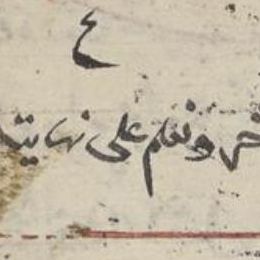 ع
ونعلم على نهايته